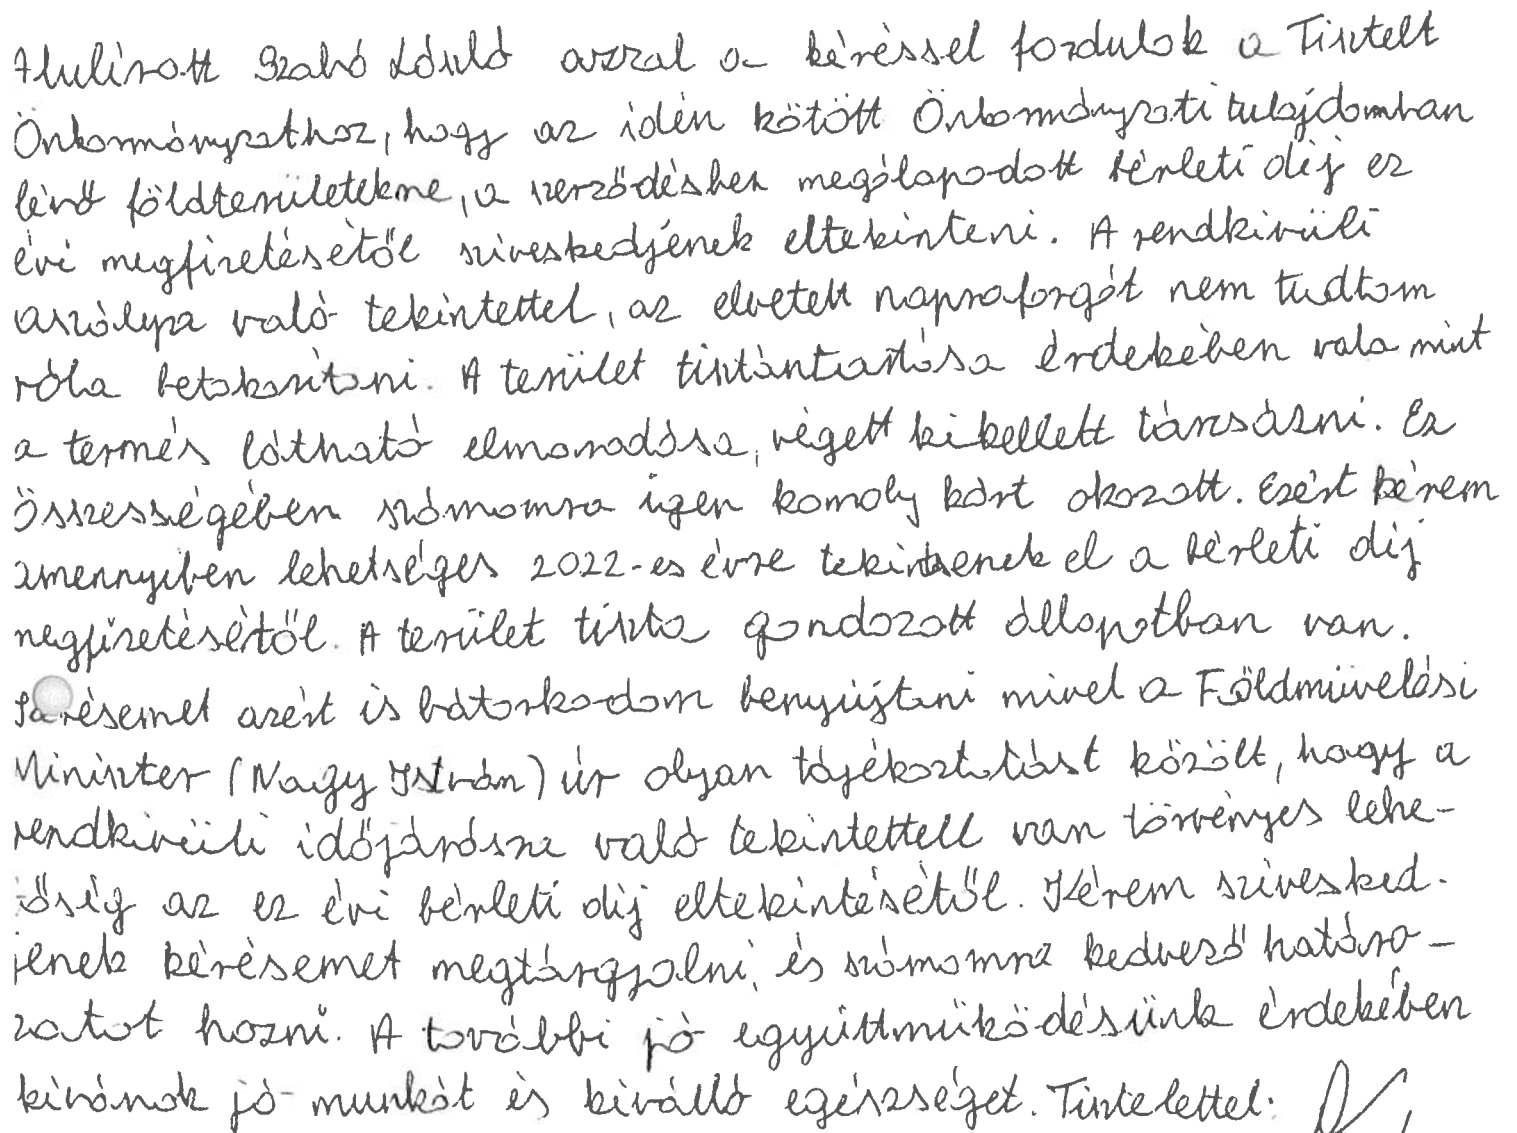 Alulírott Szabó László azzal a kéréssel fordulok a Tisztelt
Önkormányzathoz, hogy az idén kötött Önkormányzati tulajdonban
lévő földterületekre, a szerződésben megálapodott bérleti díj ez
évi megfizetésétől sziveskedjének eltekinteni. A rendkivüli
aszályra való tekintettel, az elvetett napraforgót nem tudtam
róla betakarítani. A terület tisztántartása érdekében vala mint
a termés látható elmaradása, végett ki kellett tárcsázni. Ez
összességében számomra igen komoly kárt okozott. Ezért kérem
amennyiben lehetséges 2022-es évre tekintsenek el a bérleti díj
megfizetésétől. A terület tiszta gondozott állapotban van.
Kérésemet azért is bátorkodom benyújtani mivel a Földművelési
Miniszter (Nagy István) úr olyan tájékoztatást közölt, hogy a
rendkivüli időjárásra való tekintettell van törvényes lehe-
tőség az ez évi bérleti díj eltekintésétől. Kérem szivesked-
jenek kérésemet megtárgyalni, és számomra kedvező határo-
zatot hozni. A további jó együttműködésünk érdekében
kivánok jó munkát és kiválló egészséget. Tisztelettel: